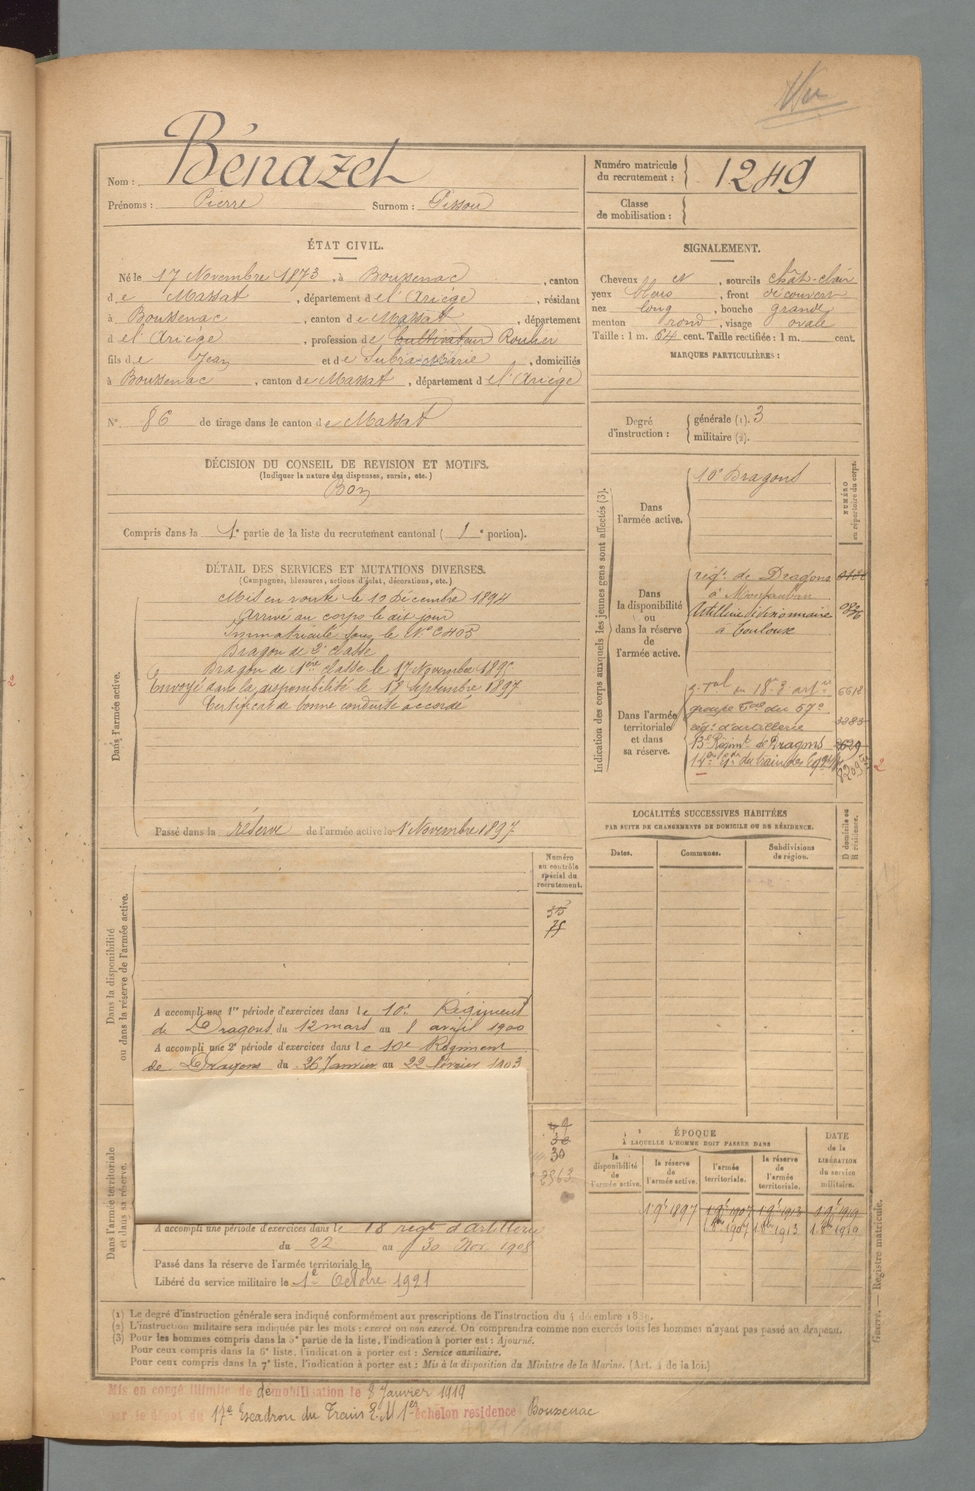 Vu
Nom : Bénazet
Prénoms : Pierre Surnom :
Numéro matricule du recrutement : 1249
Classe de mobilisation :
ÉTAT CIVIL.
Né le 17 Novembre 1873, à Boussenac, canton
de Massat, département de l'Ariège, résidant
à Boussenac, canton de Massat, département
de l'Ariège, profession de cultivateur Roulier
fils de Jean et de Subra Marie, domiciliés
à Boussenac, canton de Massat, département de l'Ariège
N° 86 de tirage dans le canton de Massat
DÉCISION DU CONSEIL DE REVISION ET MOTIFS.
(Indiquer la nature des dispenses, sursis, etc.)
Bon
Compris dans la 1e partie de la liste du recrutement cantonal ( 1e portion).
DÉTAIL DES SERVICES ET MUTATIONS DIVERSES.
(Campagnes, blessures, actions d'éclat, décorations, etc.)
Dans l'armée active.
Mis en route le 10 décembre 1894
Arrivé au corps le dit jour
Immatriculé sous le N° C405
Dragon de 2e classe
Dragon de 1ère classe le 17 Novembre
Envoyé dans la disponibilité le 18 Septembre 1897
Certificat de bonne conduite accordé
Passé dans la réserve de l'armée active le 1r Novembre 1897
Dans la disponibilité
ou dans la réserve de l'armée active.
Numéro
au contrôle
spécial du
recrutement.
A accompli une 1re période d'exercices dans le 10e Régiment
de Dragons du 12 mars au 8 avril 1900
A accompli une 2e période d'exercices dans le 10e Régiment
de Dragons du 26 Janvier au 22 février 1903
Dans l'armée territoriale
et dans sa réserve.
30
A accompli une période d'exercices dans le 18 regt d'Artillerie
du 22 au 30 Nov. 1908
Passé dans la réserve de l'armée territoriale le
Libéré du service militaire le 1e Octobre 1921
SIGNALEMENT.
Cheveux et, sourcils chât-clair
yeux bleus, front découvert
nez long, bouche grande
menton rond, visage ovale
Taille : 1 m. 64 cent. Taille rectifiée : 1 m. cent.
MARQUES PARTICULIÈRES :
Degré
d'instruction :
générale (1). 3
militaire (2).
Indication des corps auxquels les jeunes gens sont affectés (3).
NUMÉRO
au répertoire du corps.
Dans
l'armée active.
10e Dragons
Dans
la disponibilité
ou
dans la réserve
de
l'armée active.
régt de Dragons
à Montauban
Artillerie divisionnaire
à Toulouse
Dans l'armée
territoriale
et dans
sa réserve.
groupe Tal du 57e
rég. d'artillerie
6612
3283
LOCALITÉS SUCCESSIVES HABITÉES
PAR SUITE DE CHANGEMENTS DE DOMICILE OU DE RÉSIDENCE.
Dates.
Communes.
Subdivisions
de région.
D domicile ou
R résidence.
ÉPOQUE
À LAQUELLE L'HOMME DOIT PASSER DANS
la disponibilité de l'armée active.
la réserve de l'armée active.
l'armée territoriale.
la réserve de l'armée territoriale.
DATE de la LIBÉRATION du service militaire.
(1) Le degré d'instruction générale sera indiqué conformément aux prescriptions de l'instruction du 4 décembre 1889.
(2) L'instruction militaire sera indiquée par les mots : exercé ou non exercé. On comprendra comme non exercés tous les hommes n'ayant pas passé au drapeau.
(3) Pour les hommes compris dans la 5e partie de la liste, l'indication à porter est : Ajourné.
Pour ceux compris dans la 6e liste, l'indication à porter est : Service auxiliaire.
Pour ceux compris dans la 7e liste, l'indication à porter est : Mis à la disposition du Ministre de la Marine. (Art. 4 de la loi.)
Registre matricule.
Mis en congé illimité de démobilisation le 8 Janvier 1919
par le dépôt du 17e Escadron du Train E.M 1er échelon résidence Boussenac